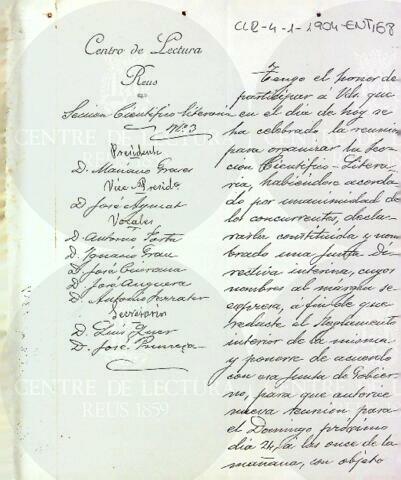 CLR-4-1-1904-ENT1E8
Centro de Lectura
Reus
Sección Científico literaria
Nº 3
Presidente
D. Mariano Grases
Vice-Preside
D. José Aguilat
Vocales
D. Antonio Porta
D. Ignacio Grau
D. José Ciurana
D. José Anguera
D. Antonio Serrater
Secretarios
D. Luis
D. José
Tengo el honor de
participar á Vds. que
en el dia de hoy se
ha celebrado la reunion
para organizar la Sec-
cion Científico-Litera-
ria, habiéndose acorda-
do por unanimidad de
los concurrentes, decla-
rarla constituida y nom-
brado una Junta di-
rectiva interina, cuyos
nombres al margen se
expresa, á fin de que
redacte el Reglamento
interior de la misma
y ponerse de acuerdo
con esa Junta de Gobier-
no, para que autorice
nueva reunion para
el Domingo próximo
dia 24, á las once de la
mañana, con objeto
CENTRE DE LECTURA
REUS 1859